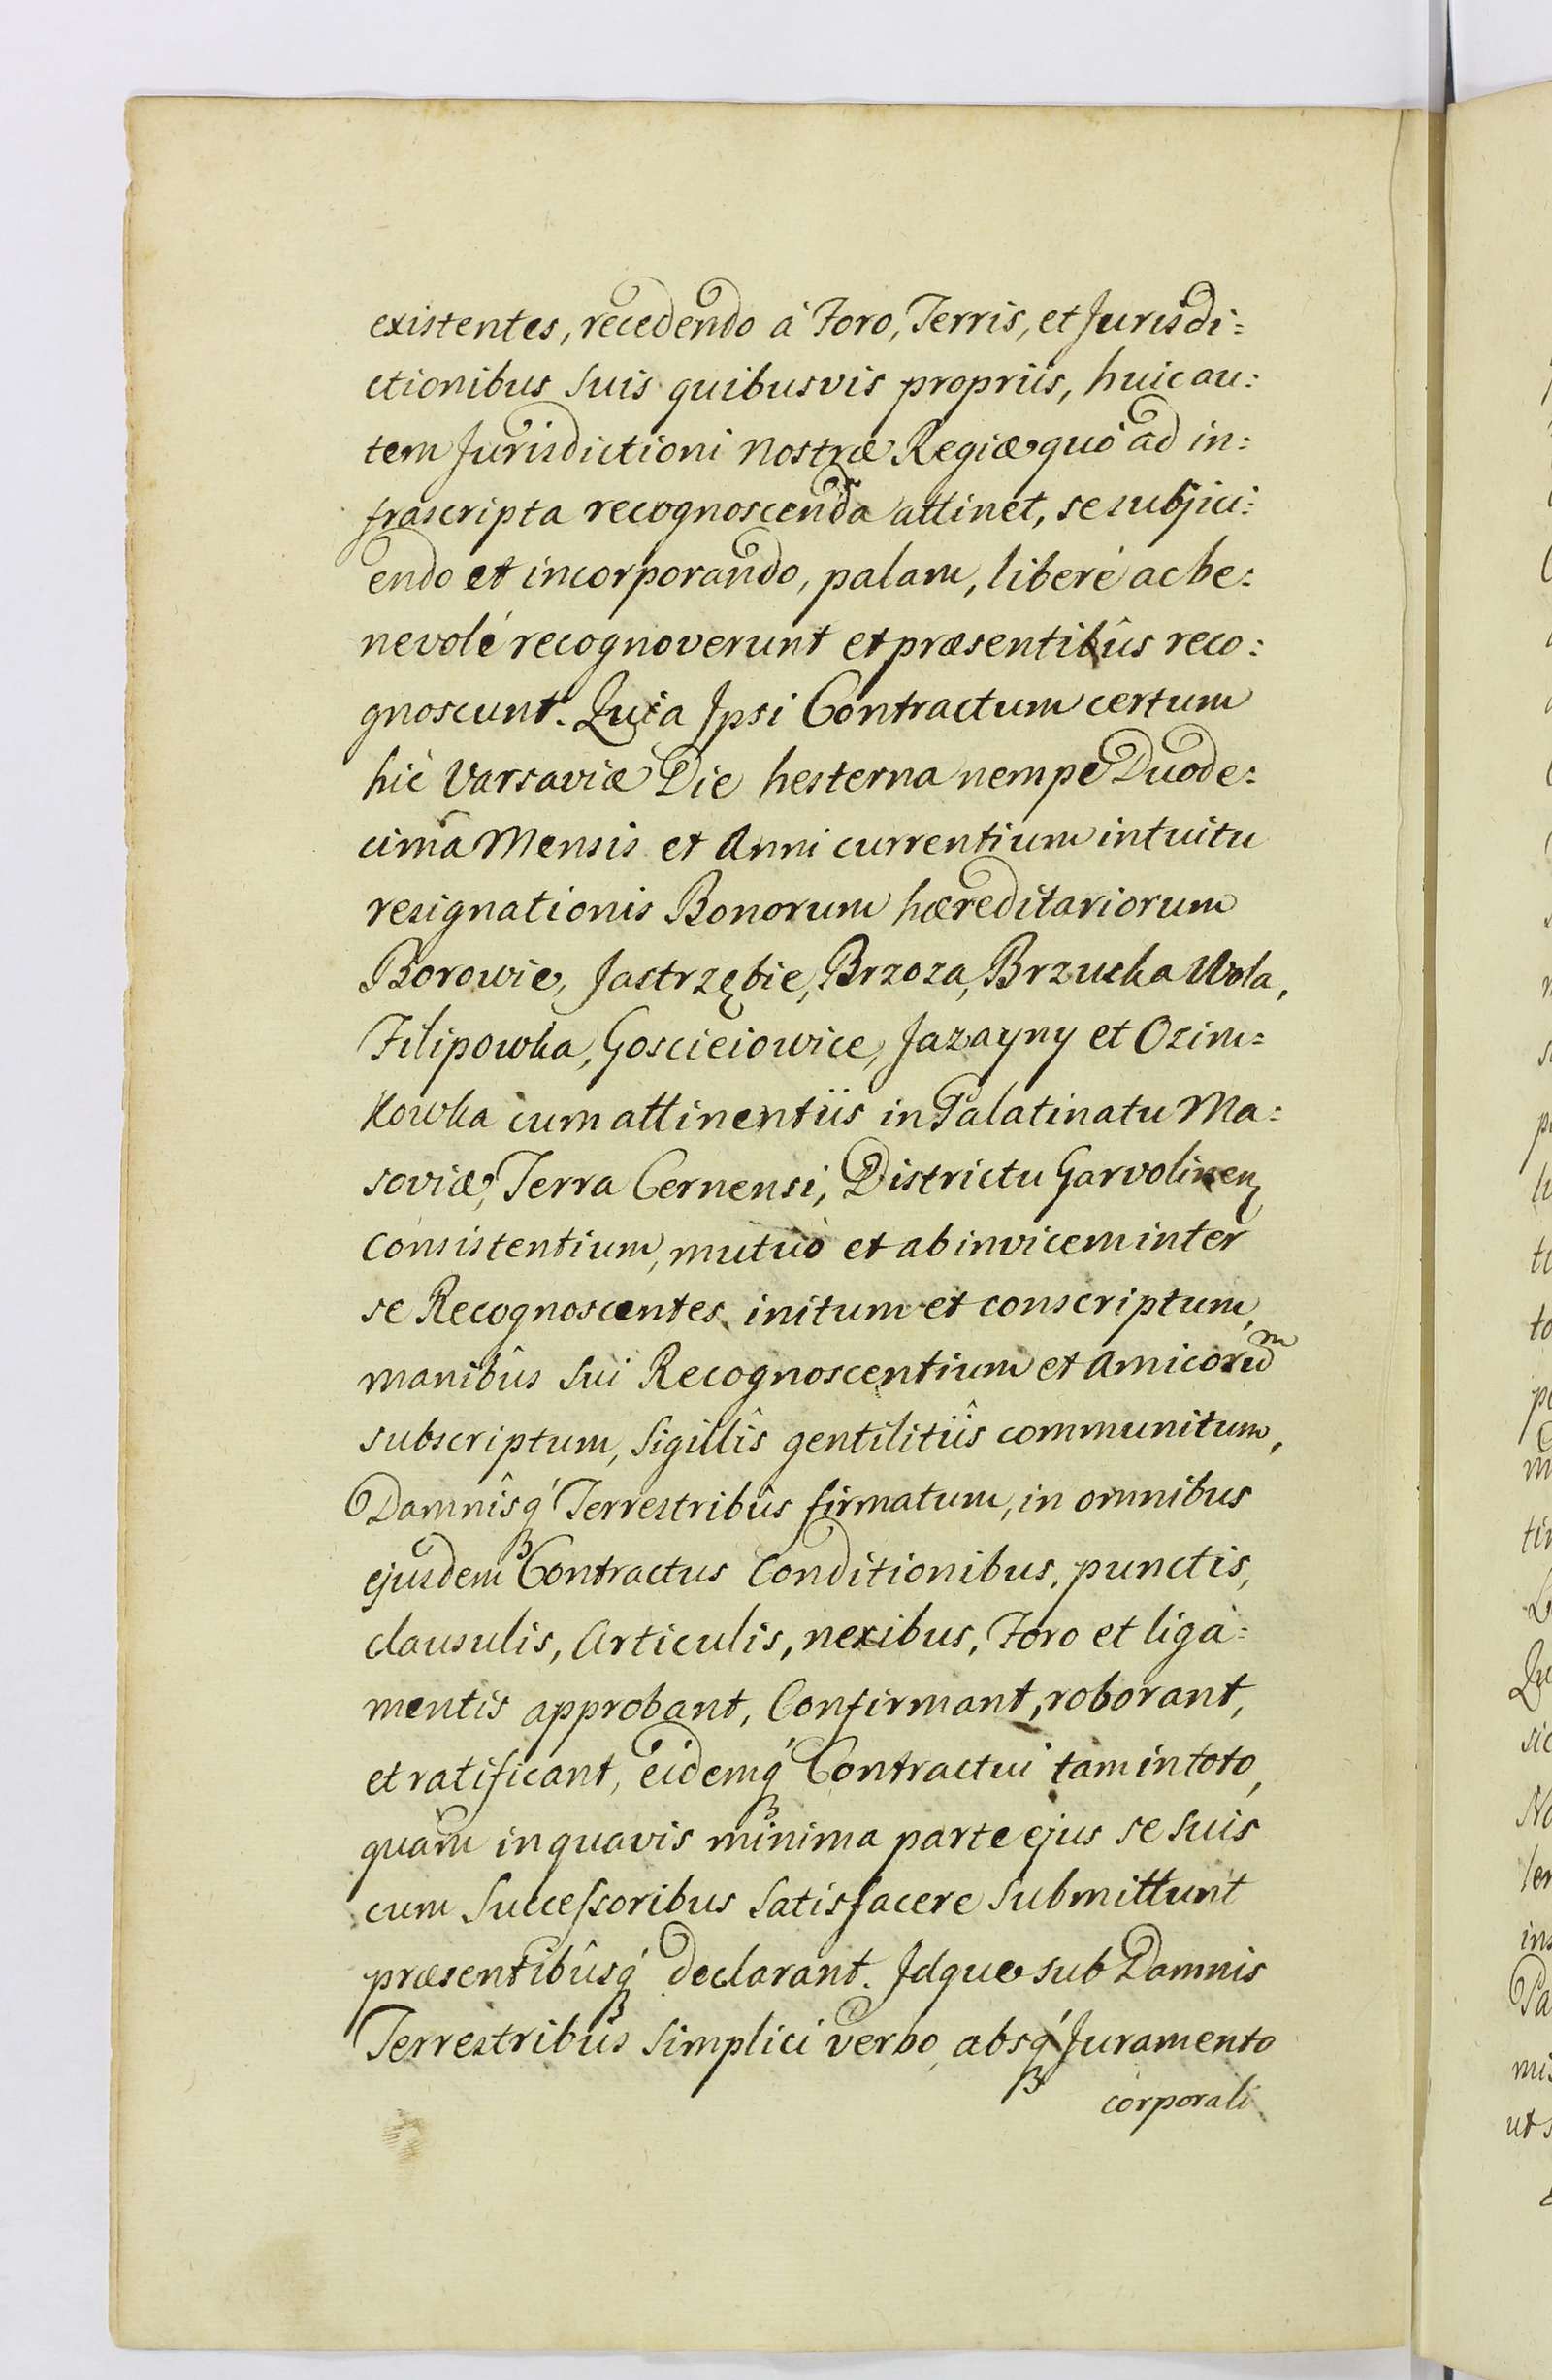 existentes, recedendo à Foro, Terris, et Jurisdi=
ctionibus suis quibusvis propriis, huic au=
tem Jurisdictioni nostræ Regiæ quò ad in=
frascripta recognoscenda attinet, se subjici=
endo et incorporando, palam, liberè ac be=
nevolè recognoverunt et præsentibûs reco=
gnoscunt. Quia Ipsi Contractum certum
hic Varsaviæ Die hesterna nempe Duode=
cima Mensis et Anni currentium intuitu
resignationis Bonorum hæreditariorum
Borowie, Jastrzębie, Brzoza, Brzucha Wola,
Filipowka, Goscieiowice, Jazayny et Ozim=
kowka cum attinentiis in Palatinatu Ma=
soviæ, Terra Cernensi, Districtu Garvolinen
consistentium, mutuò et ab invicem inter
se Recognoscentes initum et conscriptum,
manibûs sui Recognoscentium et Amicorum
subscriptum, sigillîs gentilitiîs communitum,
Damnîsq́ Terrestribûs firmatum, in omnibus
ejusdem Contractus Conditionibus, punctis,
clausulis, Articulis, nexibus, Foro et liga=
mentis approbant, Confirmant, roborant,
et ratificant, eidemq́ Contractui tam in toto,
quàm in quavis minima parte ejus se suis
cum Successoribus satisfacere submittunt
præsentibûsq́ declarant. Idque sub Damnis
Terrestribûs simplici verbo absq́ Juramento
corporali